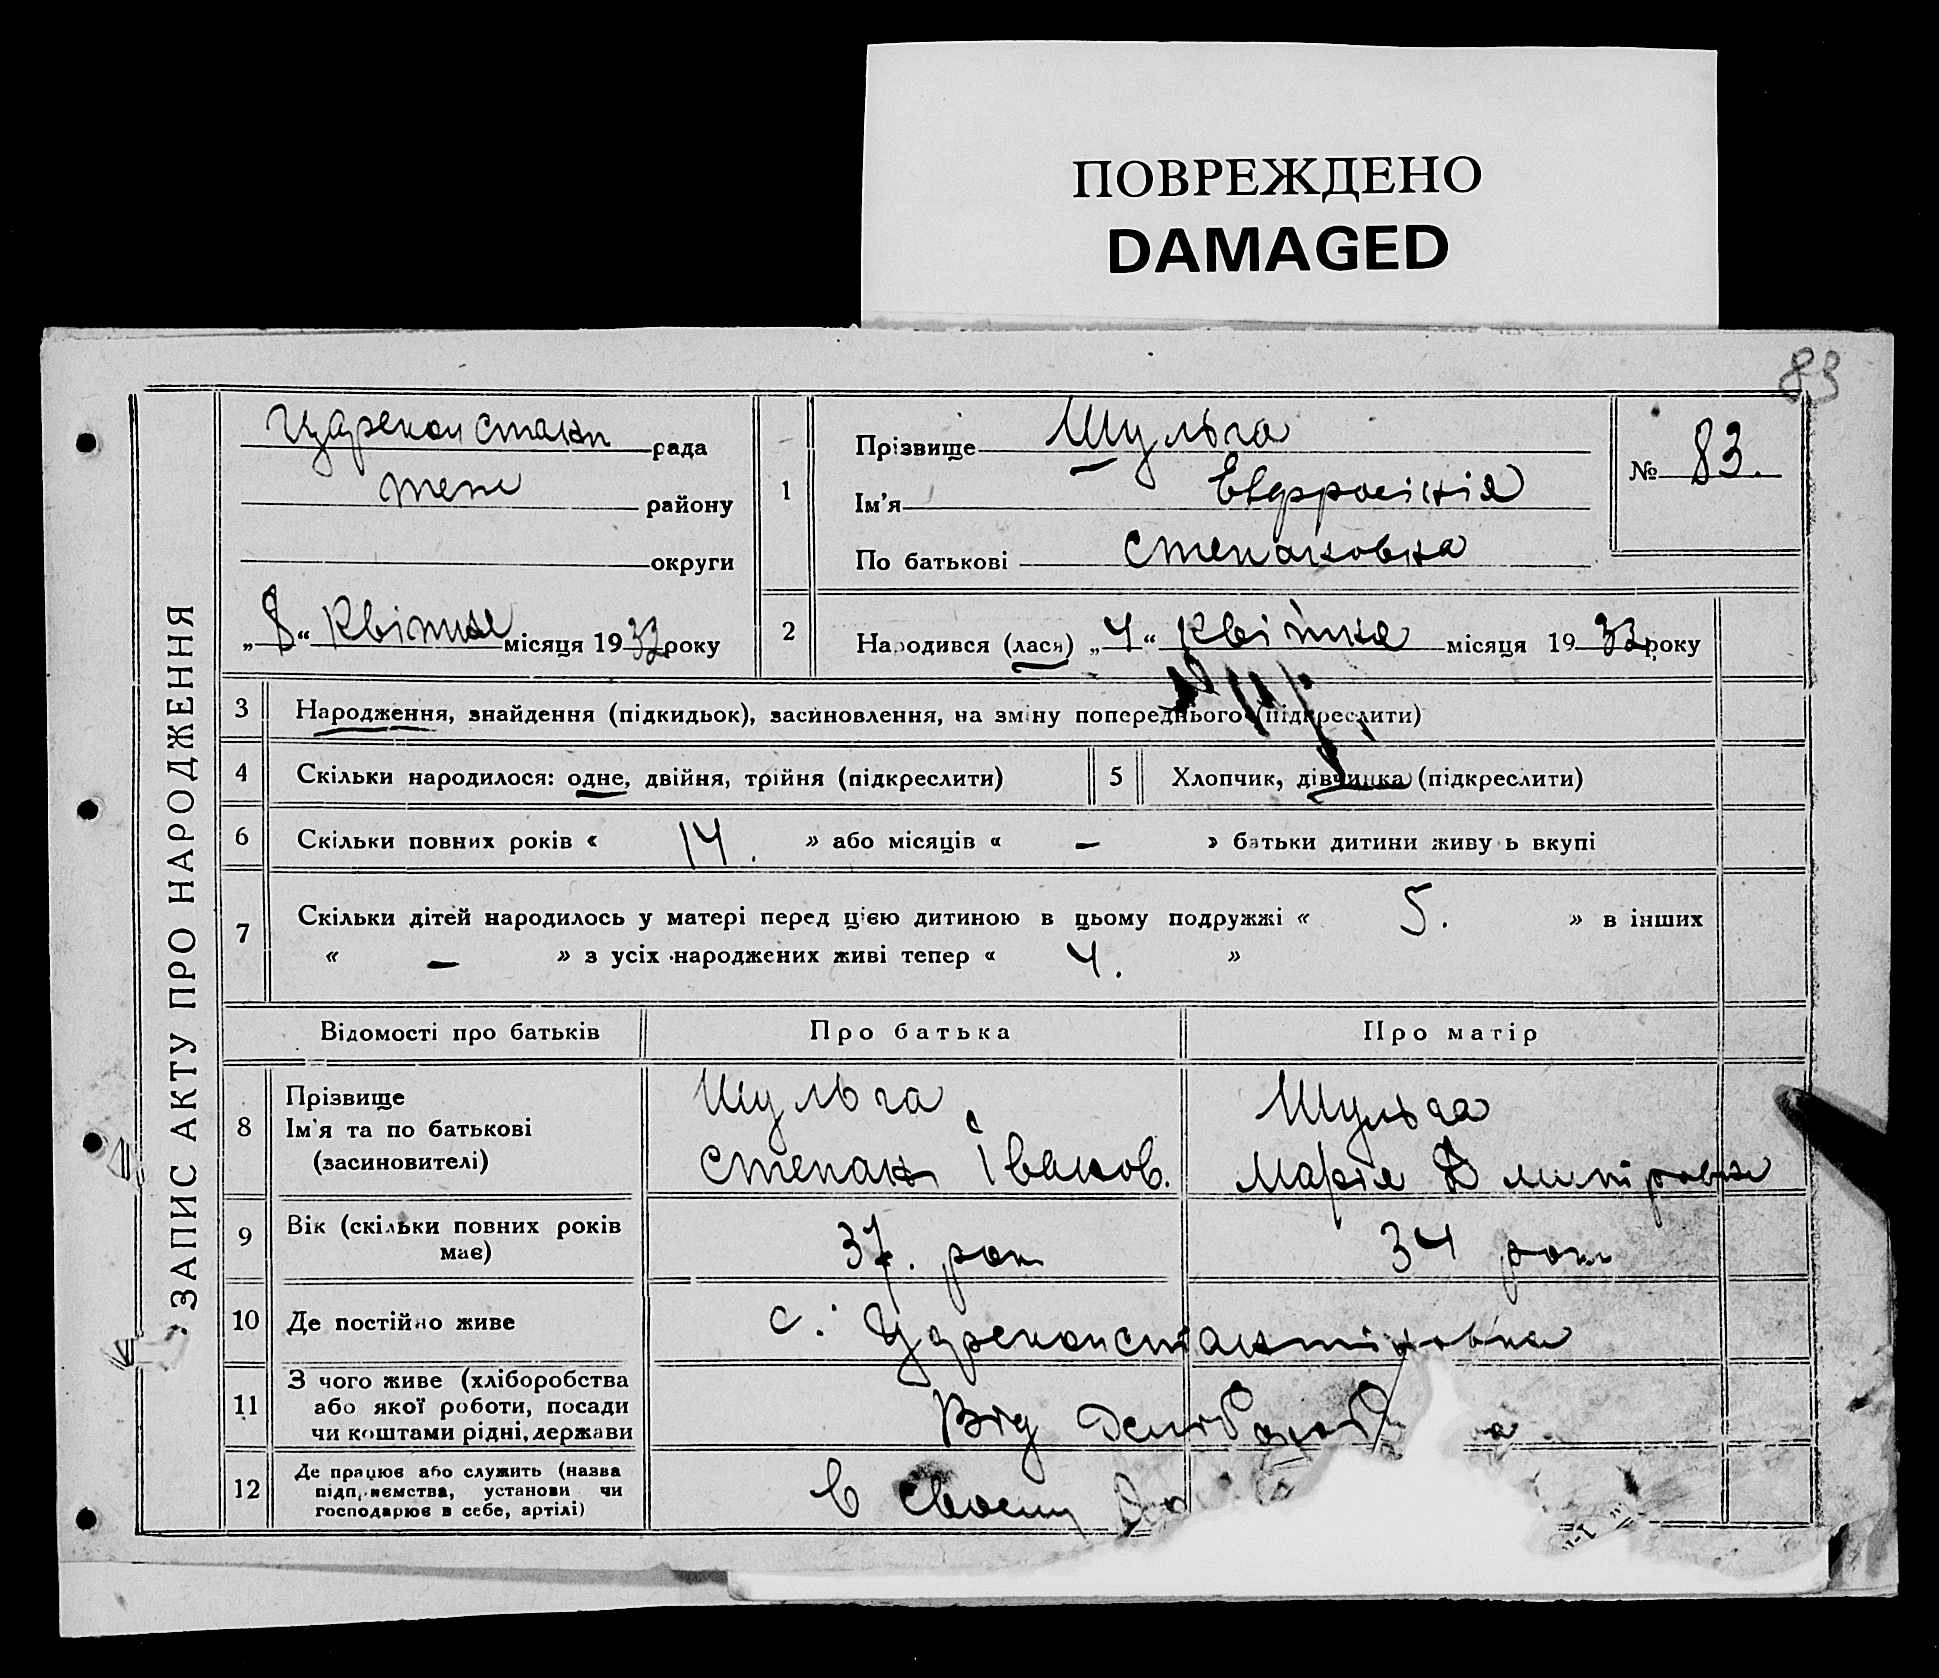 ПОВРЕЖДЕНО
DAMAGED
83
ЗАПИС АКТУ ПРО НАРОДЖЕННЯ
Цареконстант рада
району
округи
„8“ Квітня місяця 1933 року
1
Прізвище Шульга
Ім'я Евфросінія
По батькові Степановна
№ 83.
2
Народився (лася) „4“ Квітня місяця 1933 року
3 Народження, знайдення (підкидьок), засиновлення, на зміну попереднього (підкреслити)
4 Скільки народилося: одне, двійня, трійня (підкреслити)
5 Хлопчик, дівчинка (підкреслити)
6 Скільки повних років « 14. » або місяців « – » батьки дитини живуть вкупі
7 Скільки дітей народилось у матері перед цією дитиною в цьому подружжі « 5. » в інших
« – » з усіх народжених живі тепер « 4. »
Відомості про батьків Про батька Про матір
8
Прізвище
Ім'я та по батькові
(засиновителі)
Шульга
Степан Іванов.
Шульга
Марія Дмитровна
9
Вік (скільки повних років
має)
37. рок
34 рок
10 Де постійно живе
с. Цареконстантіновка
11
З чого живе (хліборобства
або якої роботи, посади
чи коштами рідні, держави
Від
12
Де працює або служить (назва
підприємства, установи чи
господарює в себе, артілі)
в своему